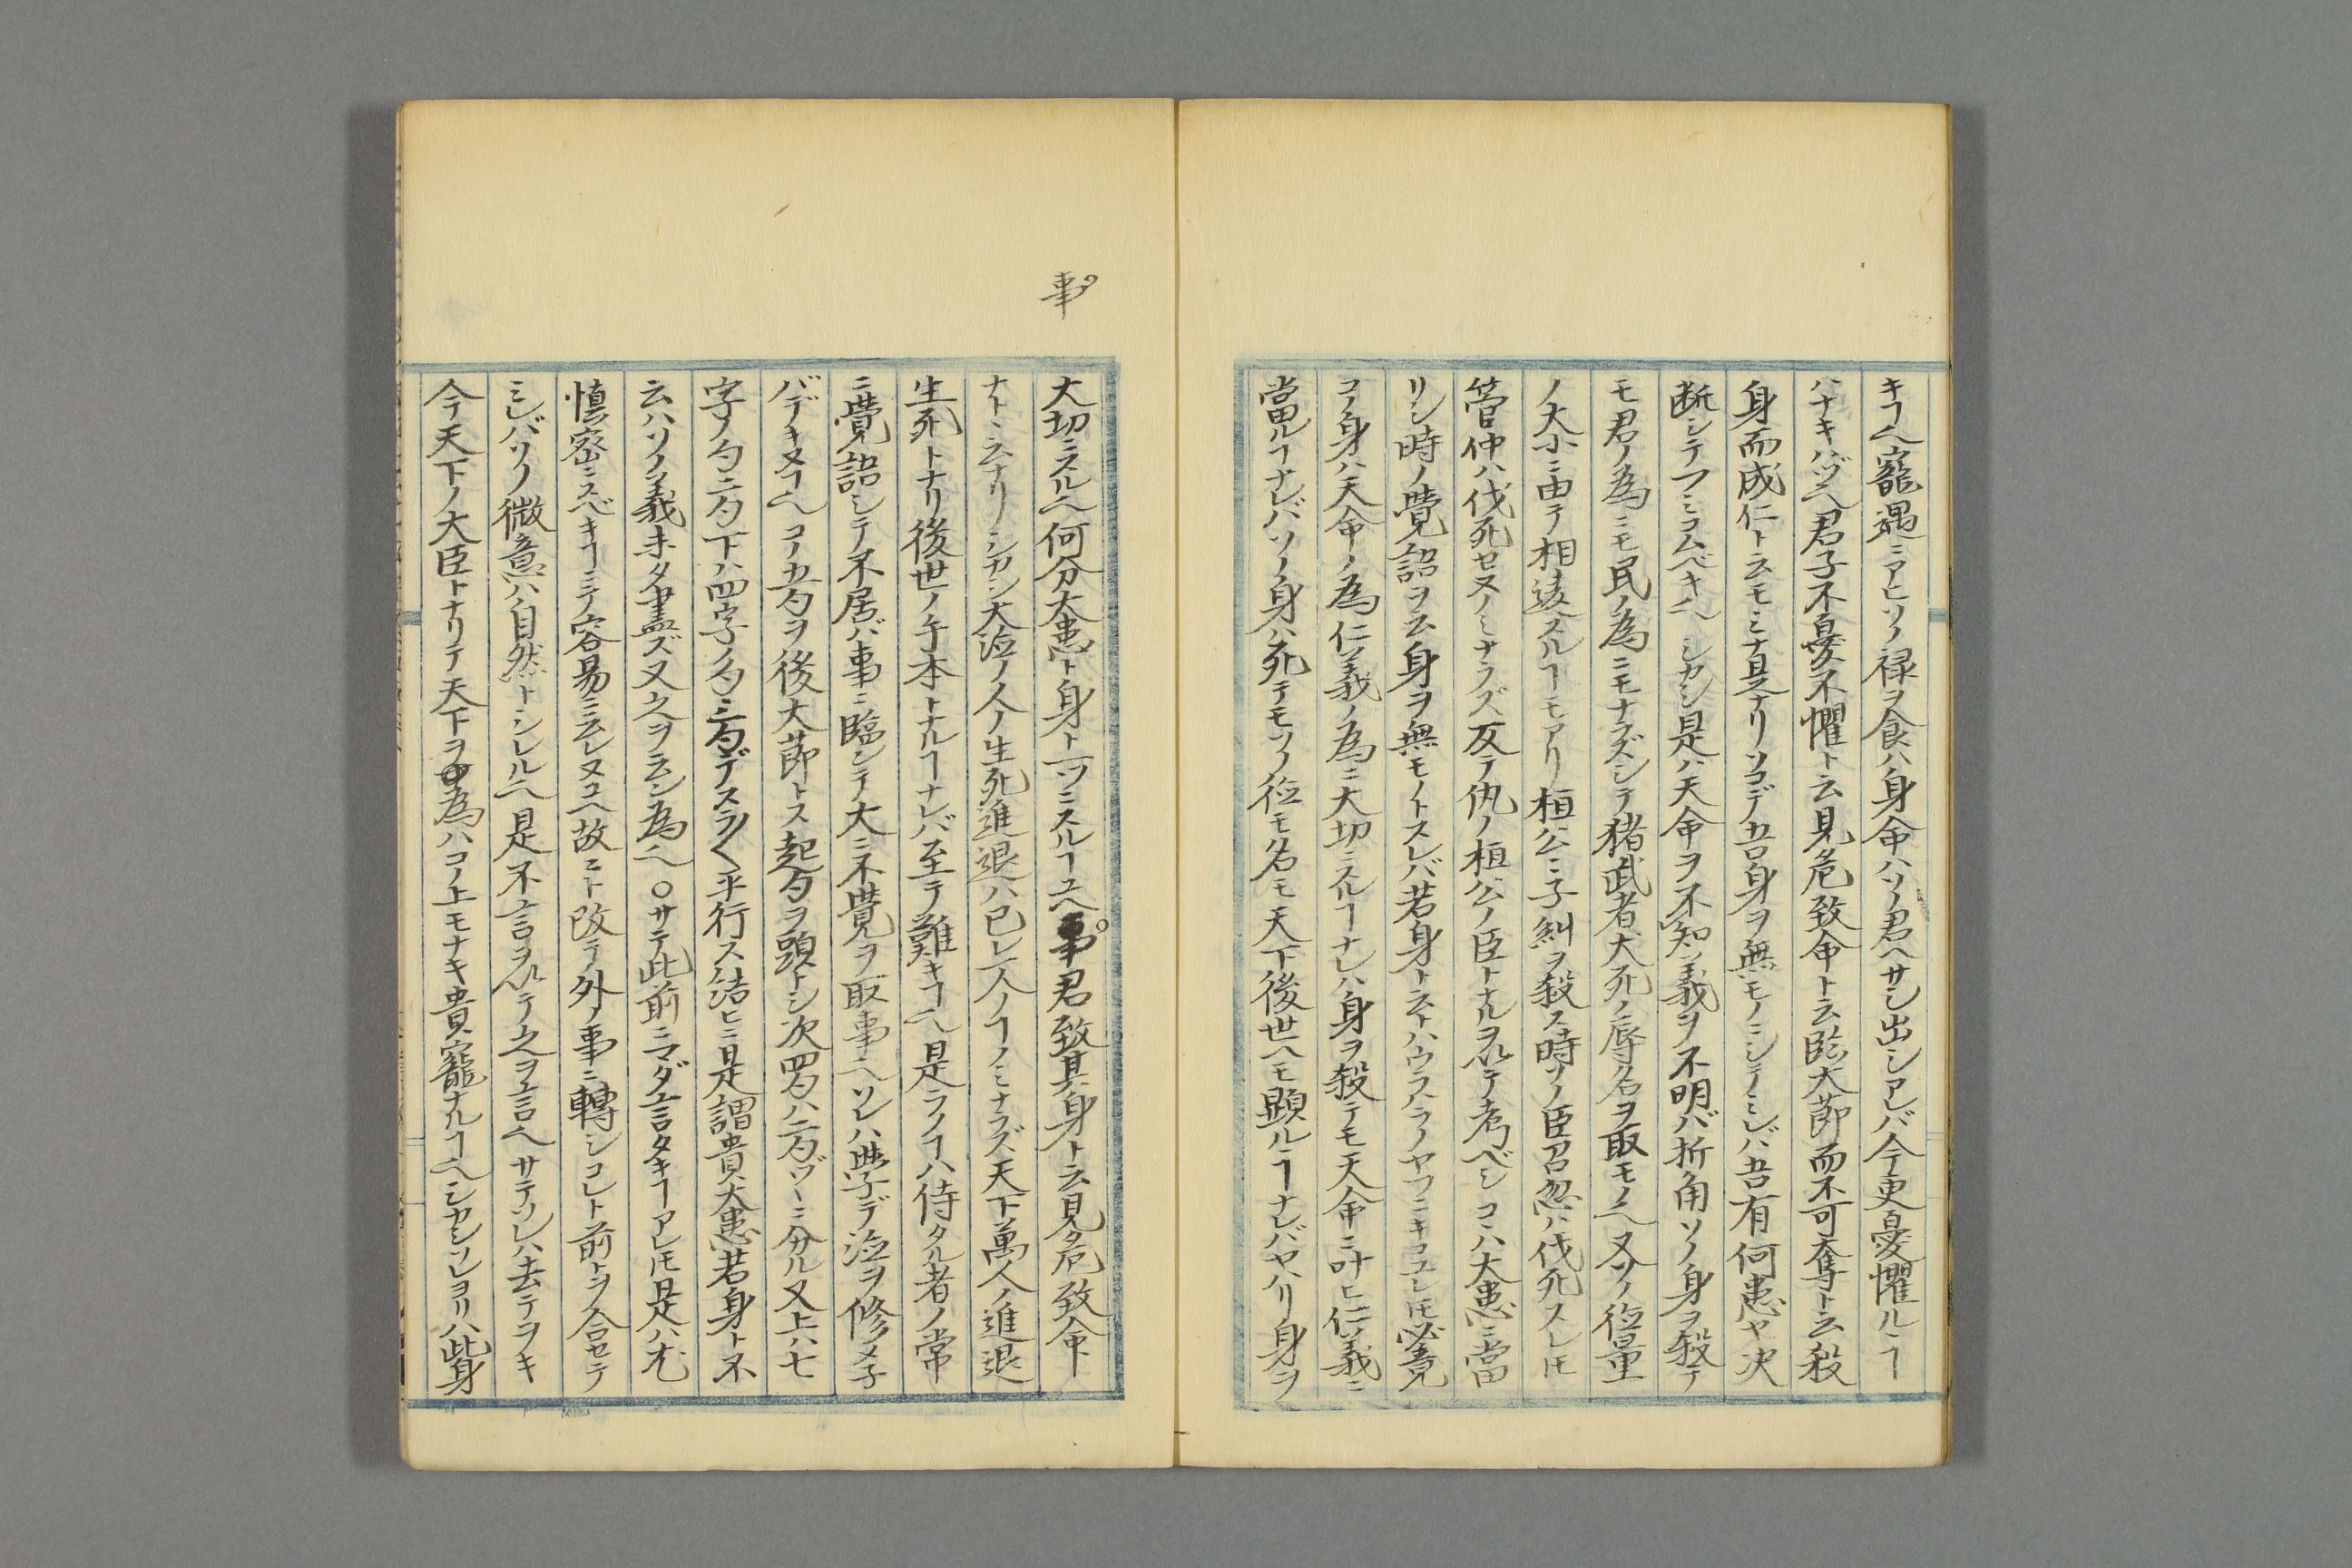 キヿ也寵遇ニアヒソノ禄ヲ食ハ身命ハソノ君ヘサシ出シアレバ今更憂懼ルヿ
ハナキハヅ也君子不憂不懼ト云見危致命ト云臨大節而不可奪ト云殺
身而成仁ト云モミナ是ナリソコデ吾身ヲ無モノニシテミレバ吾有何患ヤ决
断シテフミコムベキ也シカシ是ハ天命ヲ不知義ヲ不明バ折角ソノ身ヲ殺テ
モ君ノ為ニモ民ノ為ニモナラズシテ猪武者犬死ノ辱名ヲ取モノ也又ソノ位量
ノ大小ニ由テ相違スルヿモアリ桓公ニ子糾ヲ殺ス時ソノ臣召忽ハ伐死スレ𪜈
管仲ハ伐死セヌノミナラズ反テ仇ノ桓公ノ臣トナルヲ以テ考ベシコハ大患ニ當
リシ時ノ覺語ヲ云身ヲ無モノトスレバ若身ト云ハウラハラノヤフニキコユレ𪜈必竟
コノ身ハ天命ノ為仁義ノ為ニ大切ニスルヿナレハ身ヲ殺テモ天命ニ叶ヒ仁義ニ
當ルヿナレバソノ身ハ死テモソノ位モ名モ天下後世ヘモ顕ルヿナレバヤハリ身ヲ
事
大切ニスル也何分大患ト身ト一ツニスルヿユヘ事君致其身ト云見危致命
ナトヽ云ナリシカシ大位ノ人ノ生死進退ハ已レ一人ノヿノミナラズ天下萬人ノ進退
生死トナリ後世ノ手本トナルヿナレバ至テ難キヿ也是ラノヿハ侍タル者ノ常
ニ覺語シテ不居バ事ニ臨シテ大ニ不覺ヲ取事也ソレハ此学デ位ヲ修メ子
バデキヌヿ也コノ五句ヲ後大節トス起句ヲ頭トシ次四句ハ二句ヅヽニ分ル又上ハ七
字ノ句二句下ハ四字ノ句三句デスラ〱平行ス結ヒニ是謂貴大患若身ト不
云ハソノ義未タ盡ズ又之ヲ云ン為也○サテ此前ニマダ言タキヿアレ𪜈是ハ尤
慎密ニスベキヿニテ容易ニ云レヌユヘ故ニト改テ外ノ事ニ轉シコレト前トヲ合セテ
ミレバソノ微意ハ自然トシレル也是不言ヲ以テ之ヲ言也サテソレハ去テヲキ
今天下ノ大臣トナリテ天下ヲ為ハコノ上モナキ貴寵ナルヿ也シカシソレヨリハ此身